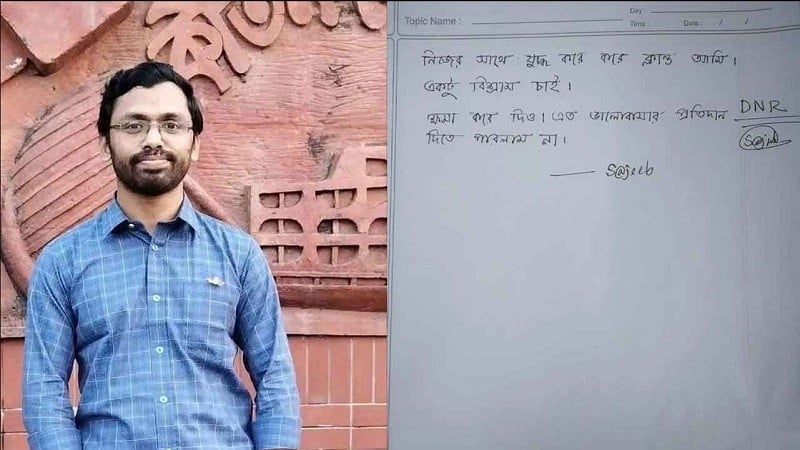 Topic Name :
Day:
Time :
Date : / /
নিজের সাথে যুদ্ধ করে করে ক্লান্ত আমি।
একটু বিশ্রাম চাই।
ক্ষমা করে দিও। এত ভালোবাসার প্রতিদান
দিতে পারলাম না।
DNR
Sajeeb